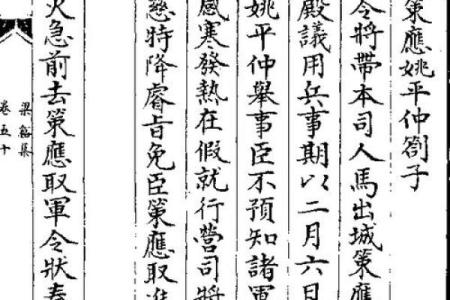 策應姚平仲劄子
令將帶本司人馬出城策應
殿議用兵事期以二月六日
姚平仲舉事臣不預知諸軍
感寒發熱在假就行營司將
慈特降睿旨免臣策應取進
火急前去策應取軍令狀奏
梁谿集
卷五十